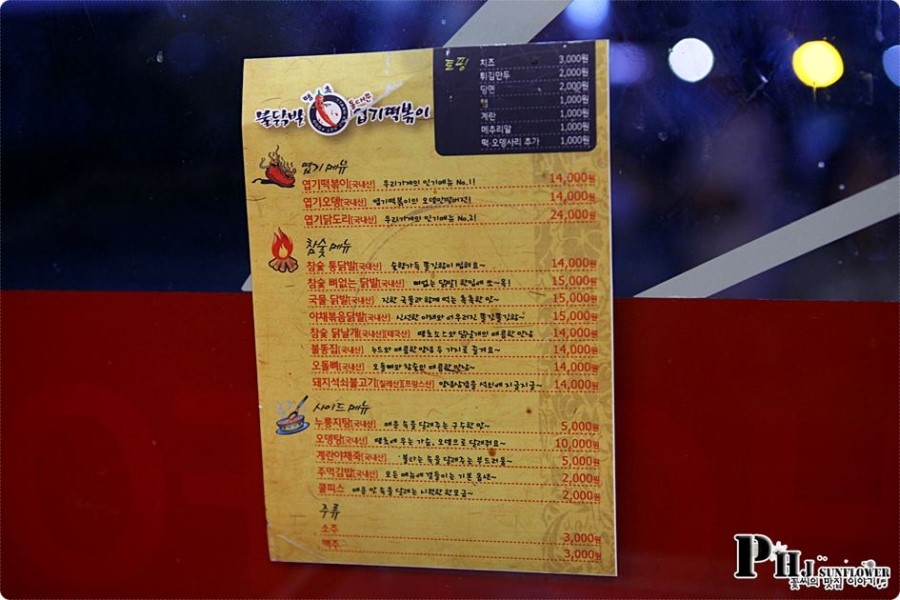 토핑
치즈 3,000원
튀김만두 2,000원
당면 2,000원
햄 1,000원
계란 1,000원
메추리알 1,000원
떡·오뎅사리 추가 1,000원
땡초
불닭발 동대문 엽기떡볶이
엽기 메뉴
엽기떡볶이[국내산] 우리가게의 인기메뉴 No.1! 14,000원
엽기오뎅[국내산] 엽기떡볶이의 오뎅만빔버전! 14,000원
엽기닭도리[국내산] 우리가게의 인기메뉴 No.2! 24,000원
참숯 메뉴
참숯 통닭발[국내산] 14,000원
참숯 뼈없는 닭발[국내산] 뼈없는 닭발! 한입에 쏘~옥! 15,000원
국물 닭발[국내산] 진한 국물과 함께 먹는 촉촉한 맛~ 15,000원
야채볶음닭발[국내산] 신선한 야채와 어우러진 쫄깃쫄깃함~ 15,000원
참숯 닭날개[국내산][태국산] 땡초소스와 닭날개의 매콤한 만남 14,000원
불똥집[국내산] 누드와 매콤한 양념 두 가지로 즐겨요~ 14,000원
오돌뼈[국내산] 오돌뼈와 참숯의 매콤한 만남~ 14,000원
돼지석쇠불고기[칠레산][프랑스산] 양념삼겹을 석쇠에 지글지글~ 14,000원
사이드 메뉴
누룽지탕[국내산] 매운 속을 달래주는 구수한 맛~ 5,000원
오뎅탕[국내산] 땡초에 우는 가슴, 오뎅으로 달래줘요~ 10,000원
계란야채죽[국내산] 불타는 속을 달래주는 부드러움~ 5,000원
주먹김밥[국내산] 모든 메뉴에 곁들이는 기본 옵션~ 2,000원
쿨피스 매운 맛 속을 달래는 시원한 한모금~ 2,000원
주류
소주 3,000원
맥주 3,000원
PHJ SUNFLOWER
꽃씨의 맛집 이야기